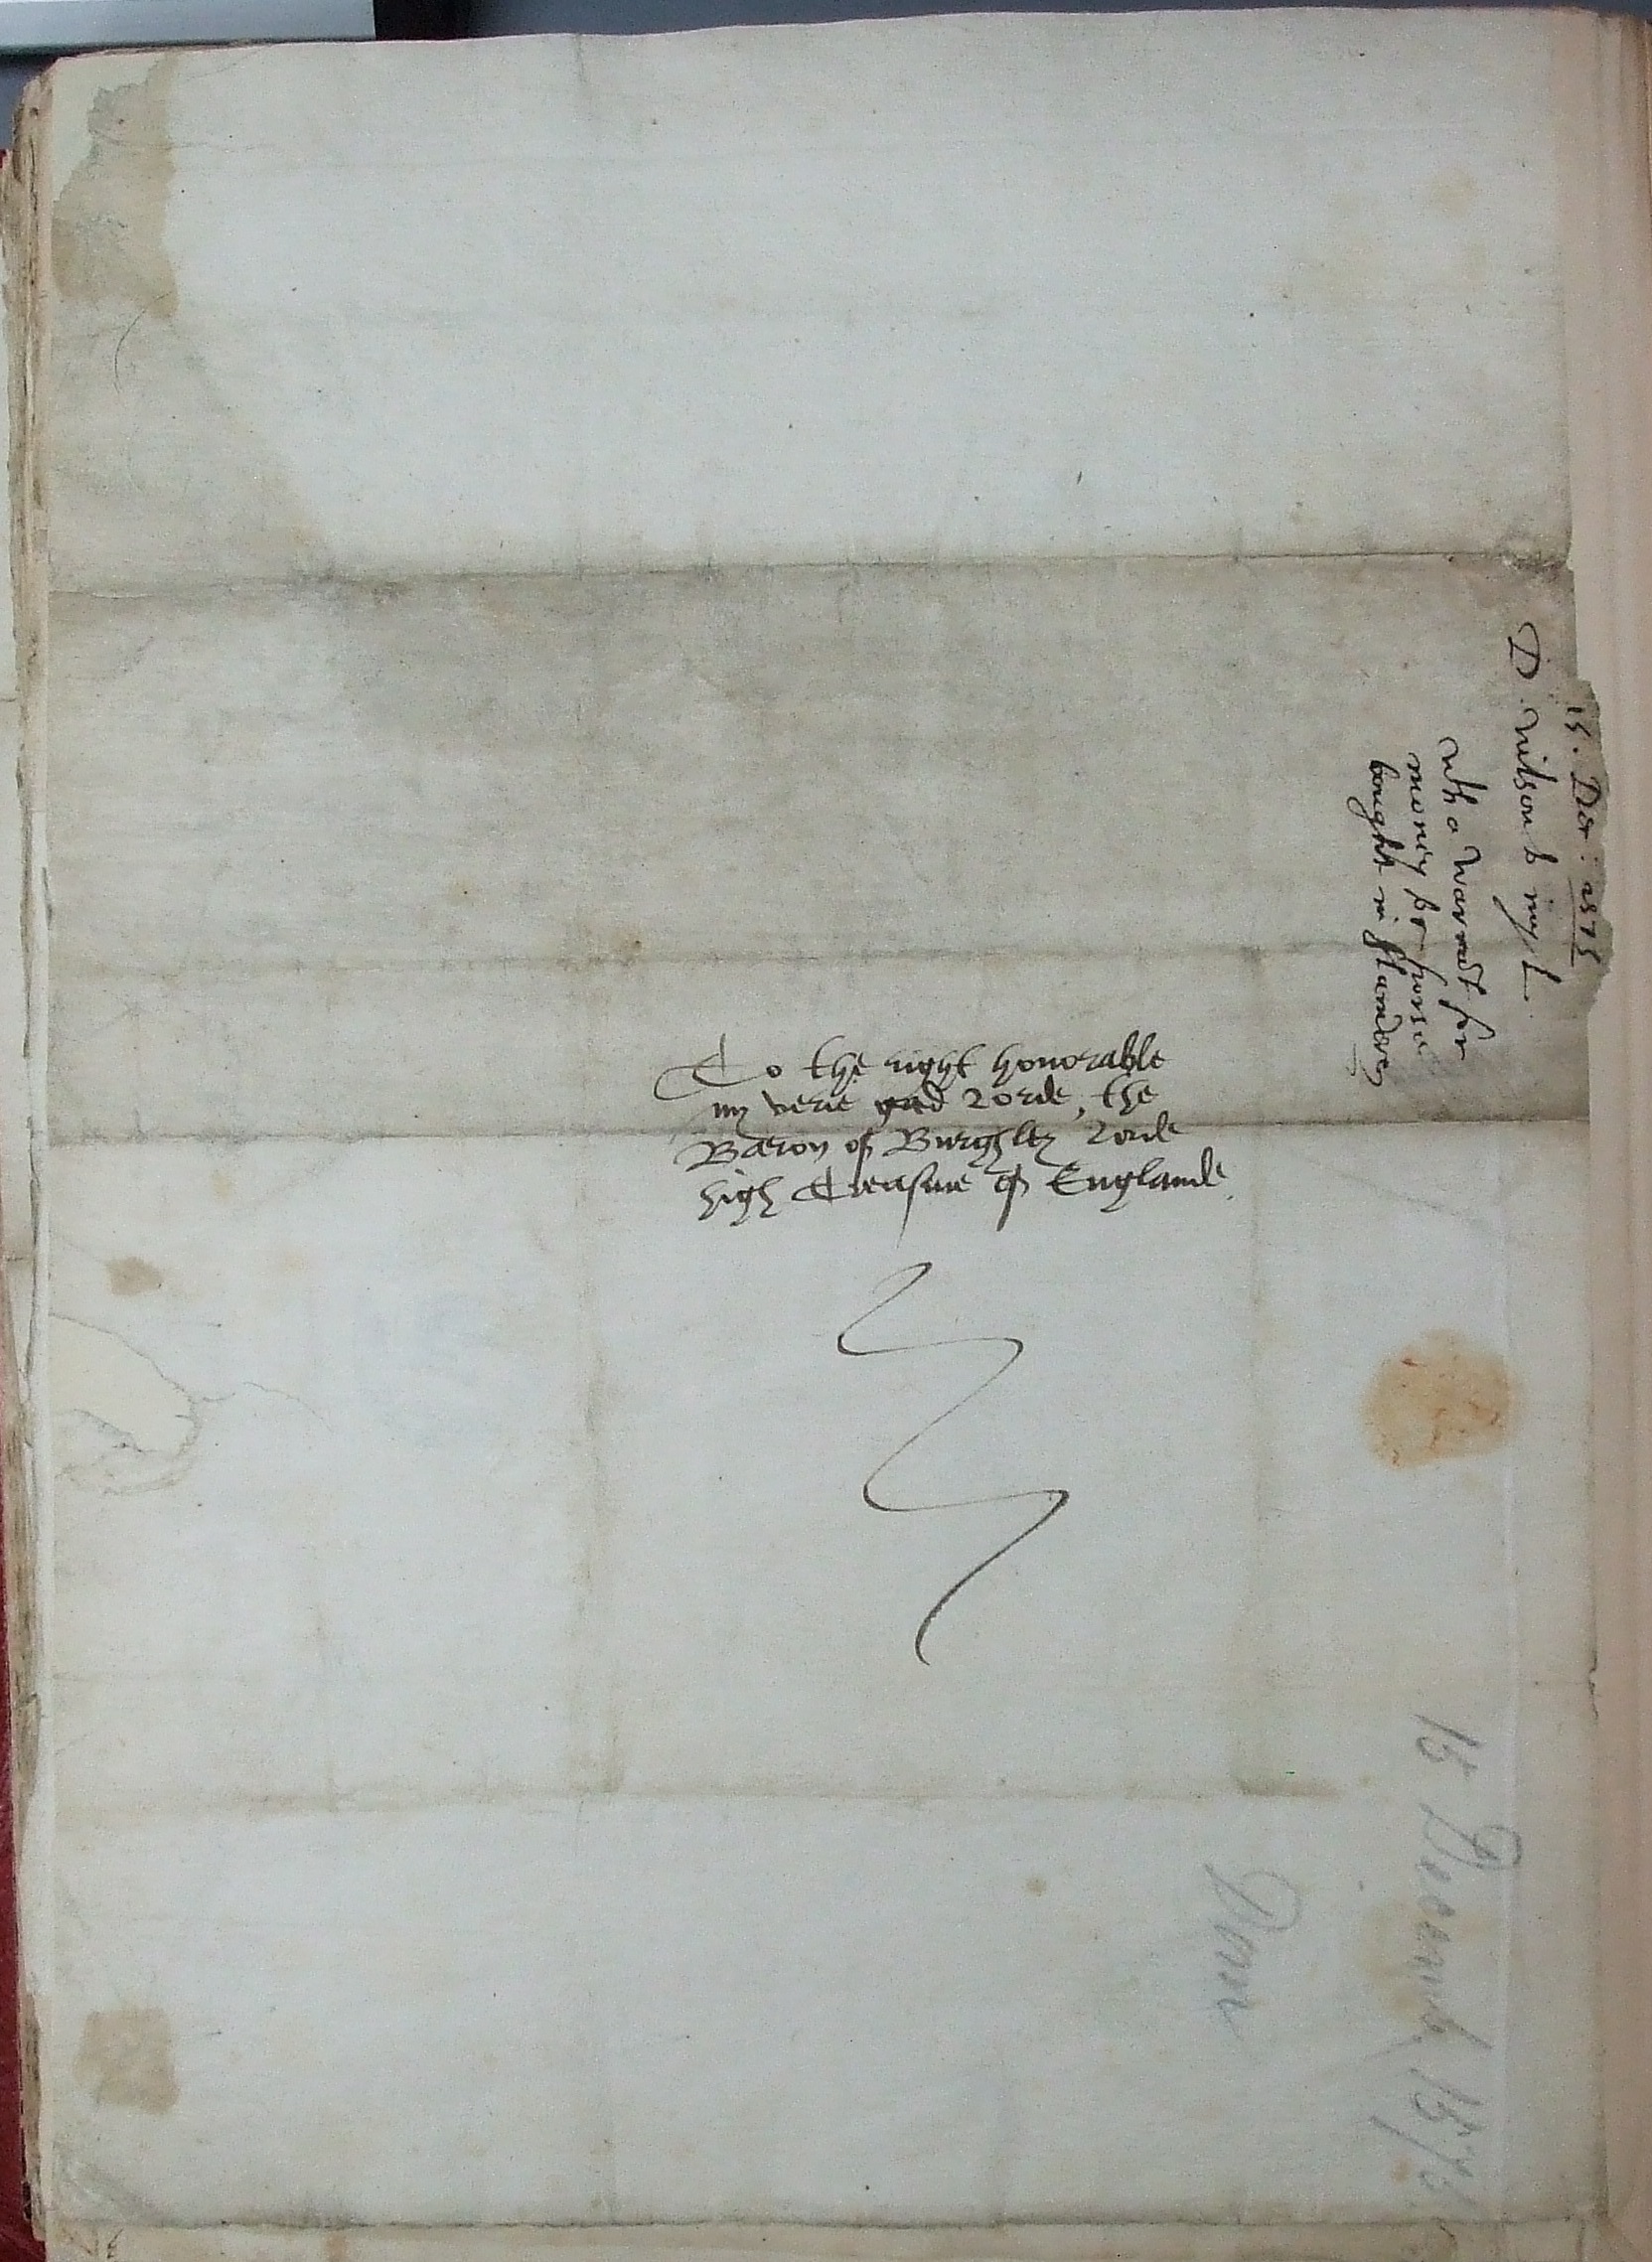 To the right honorable
my verie good Lorde, the
Baron of Burghley Lorde
high Treasurer of Englande
15. Decr: 1575
D. Wilson to my L.
wth a warrant for
money for horse
bought in flanders
15 December 1575